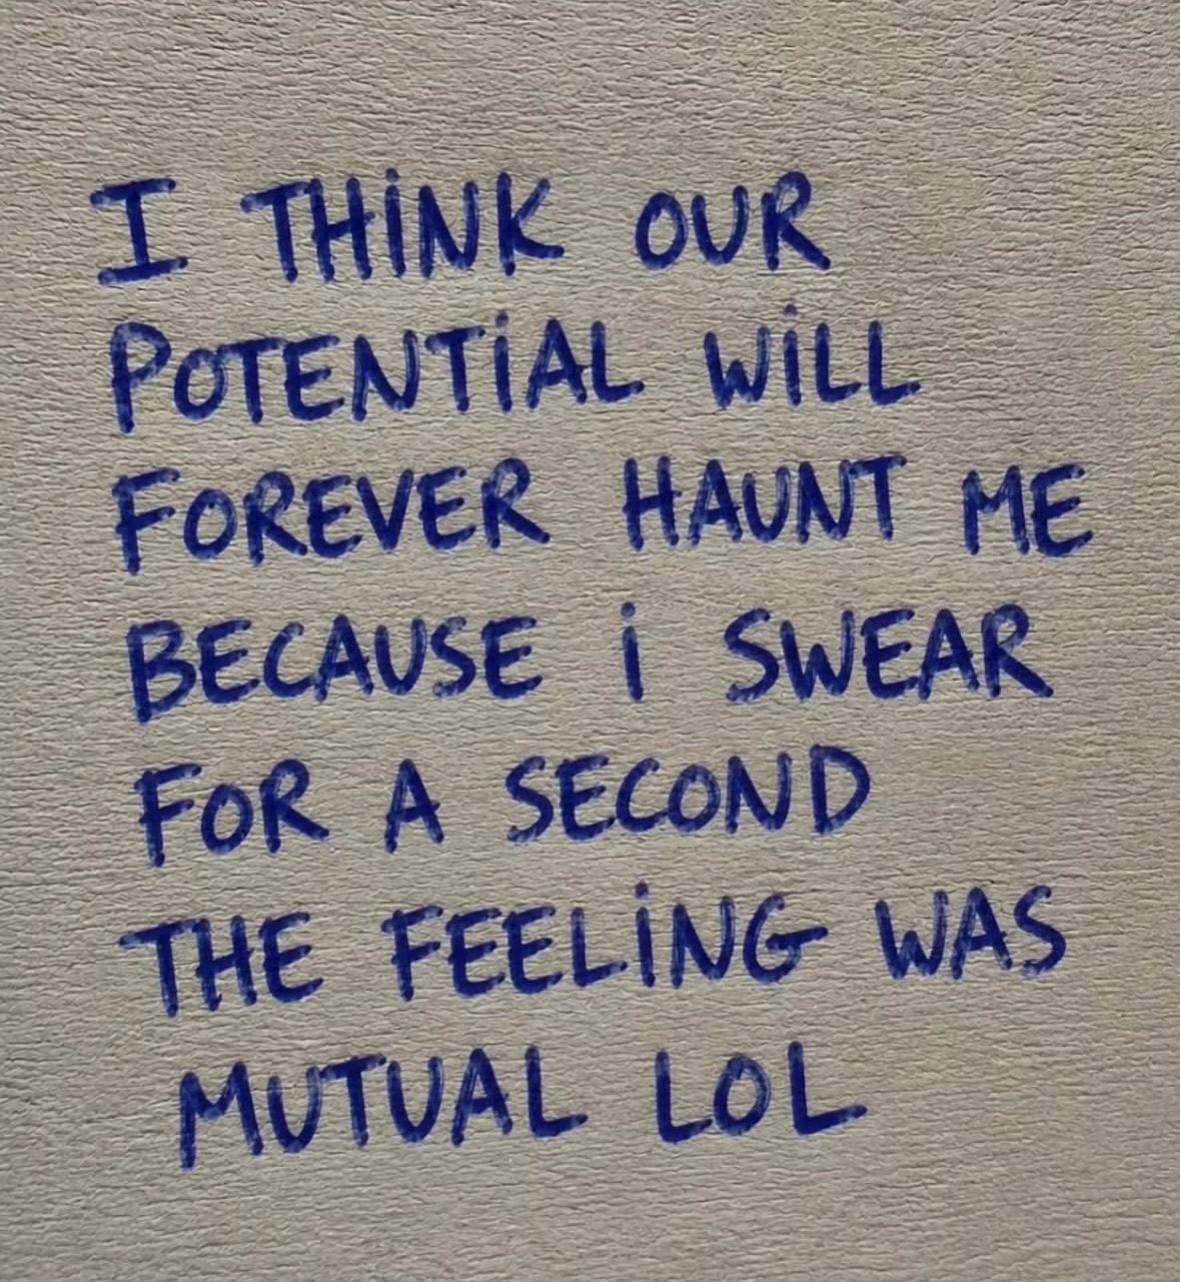 I THiNK OUR
POTENTiAL WiLL
FOREVER HAUNT ME
BECAUSE i SWEAR
FOR A SECOND
THE FEELiNG WAS
MUTUAL LOL